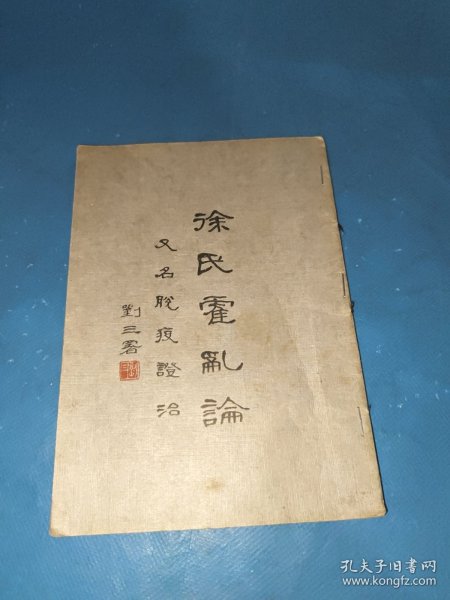 徐氏霍亂論
又名脫疫證治
劉三署
孔夫子旧书网
www.kongfz.com